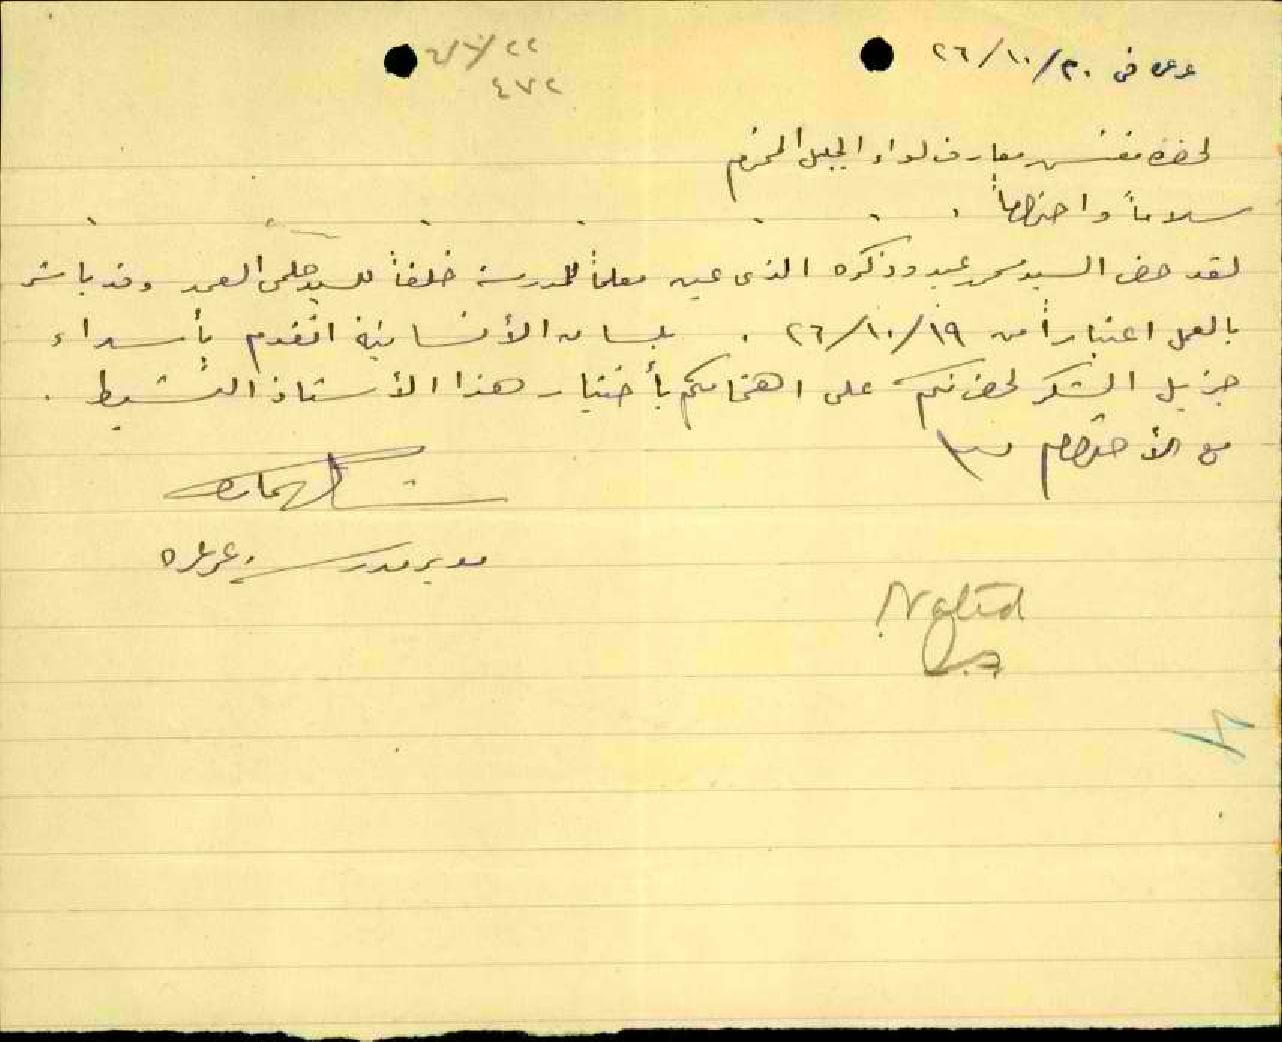 عرعره في ٢٦/١٠/٢٠
٤٧٢
لحضرة مفتش معارف لواء الجليل المحترم
سلاماً واحتراماً
لقد حضر السيد محمد عبد وذكره الذي عين معلماً للمدرسة خلفاً للسيد حلمي العمد وقد باشر
بالعمل اعتباراً من ٢٦/١٠/١٩ . بلسان الأنسانية اتقدم بأسداء
جزيل الشكر لحضرتكم على اهتمامكم بأختيار هذا الأستاذ النشيط .
مع الأحترام
مدير مدرسة عرعره
Noted